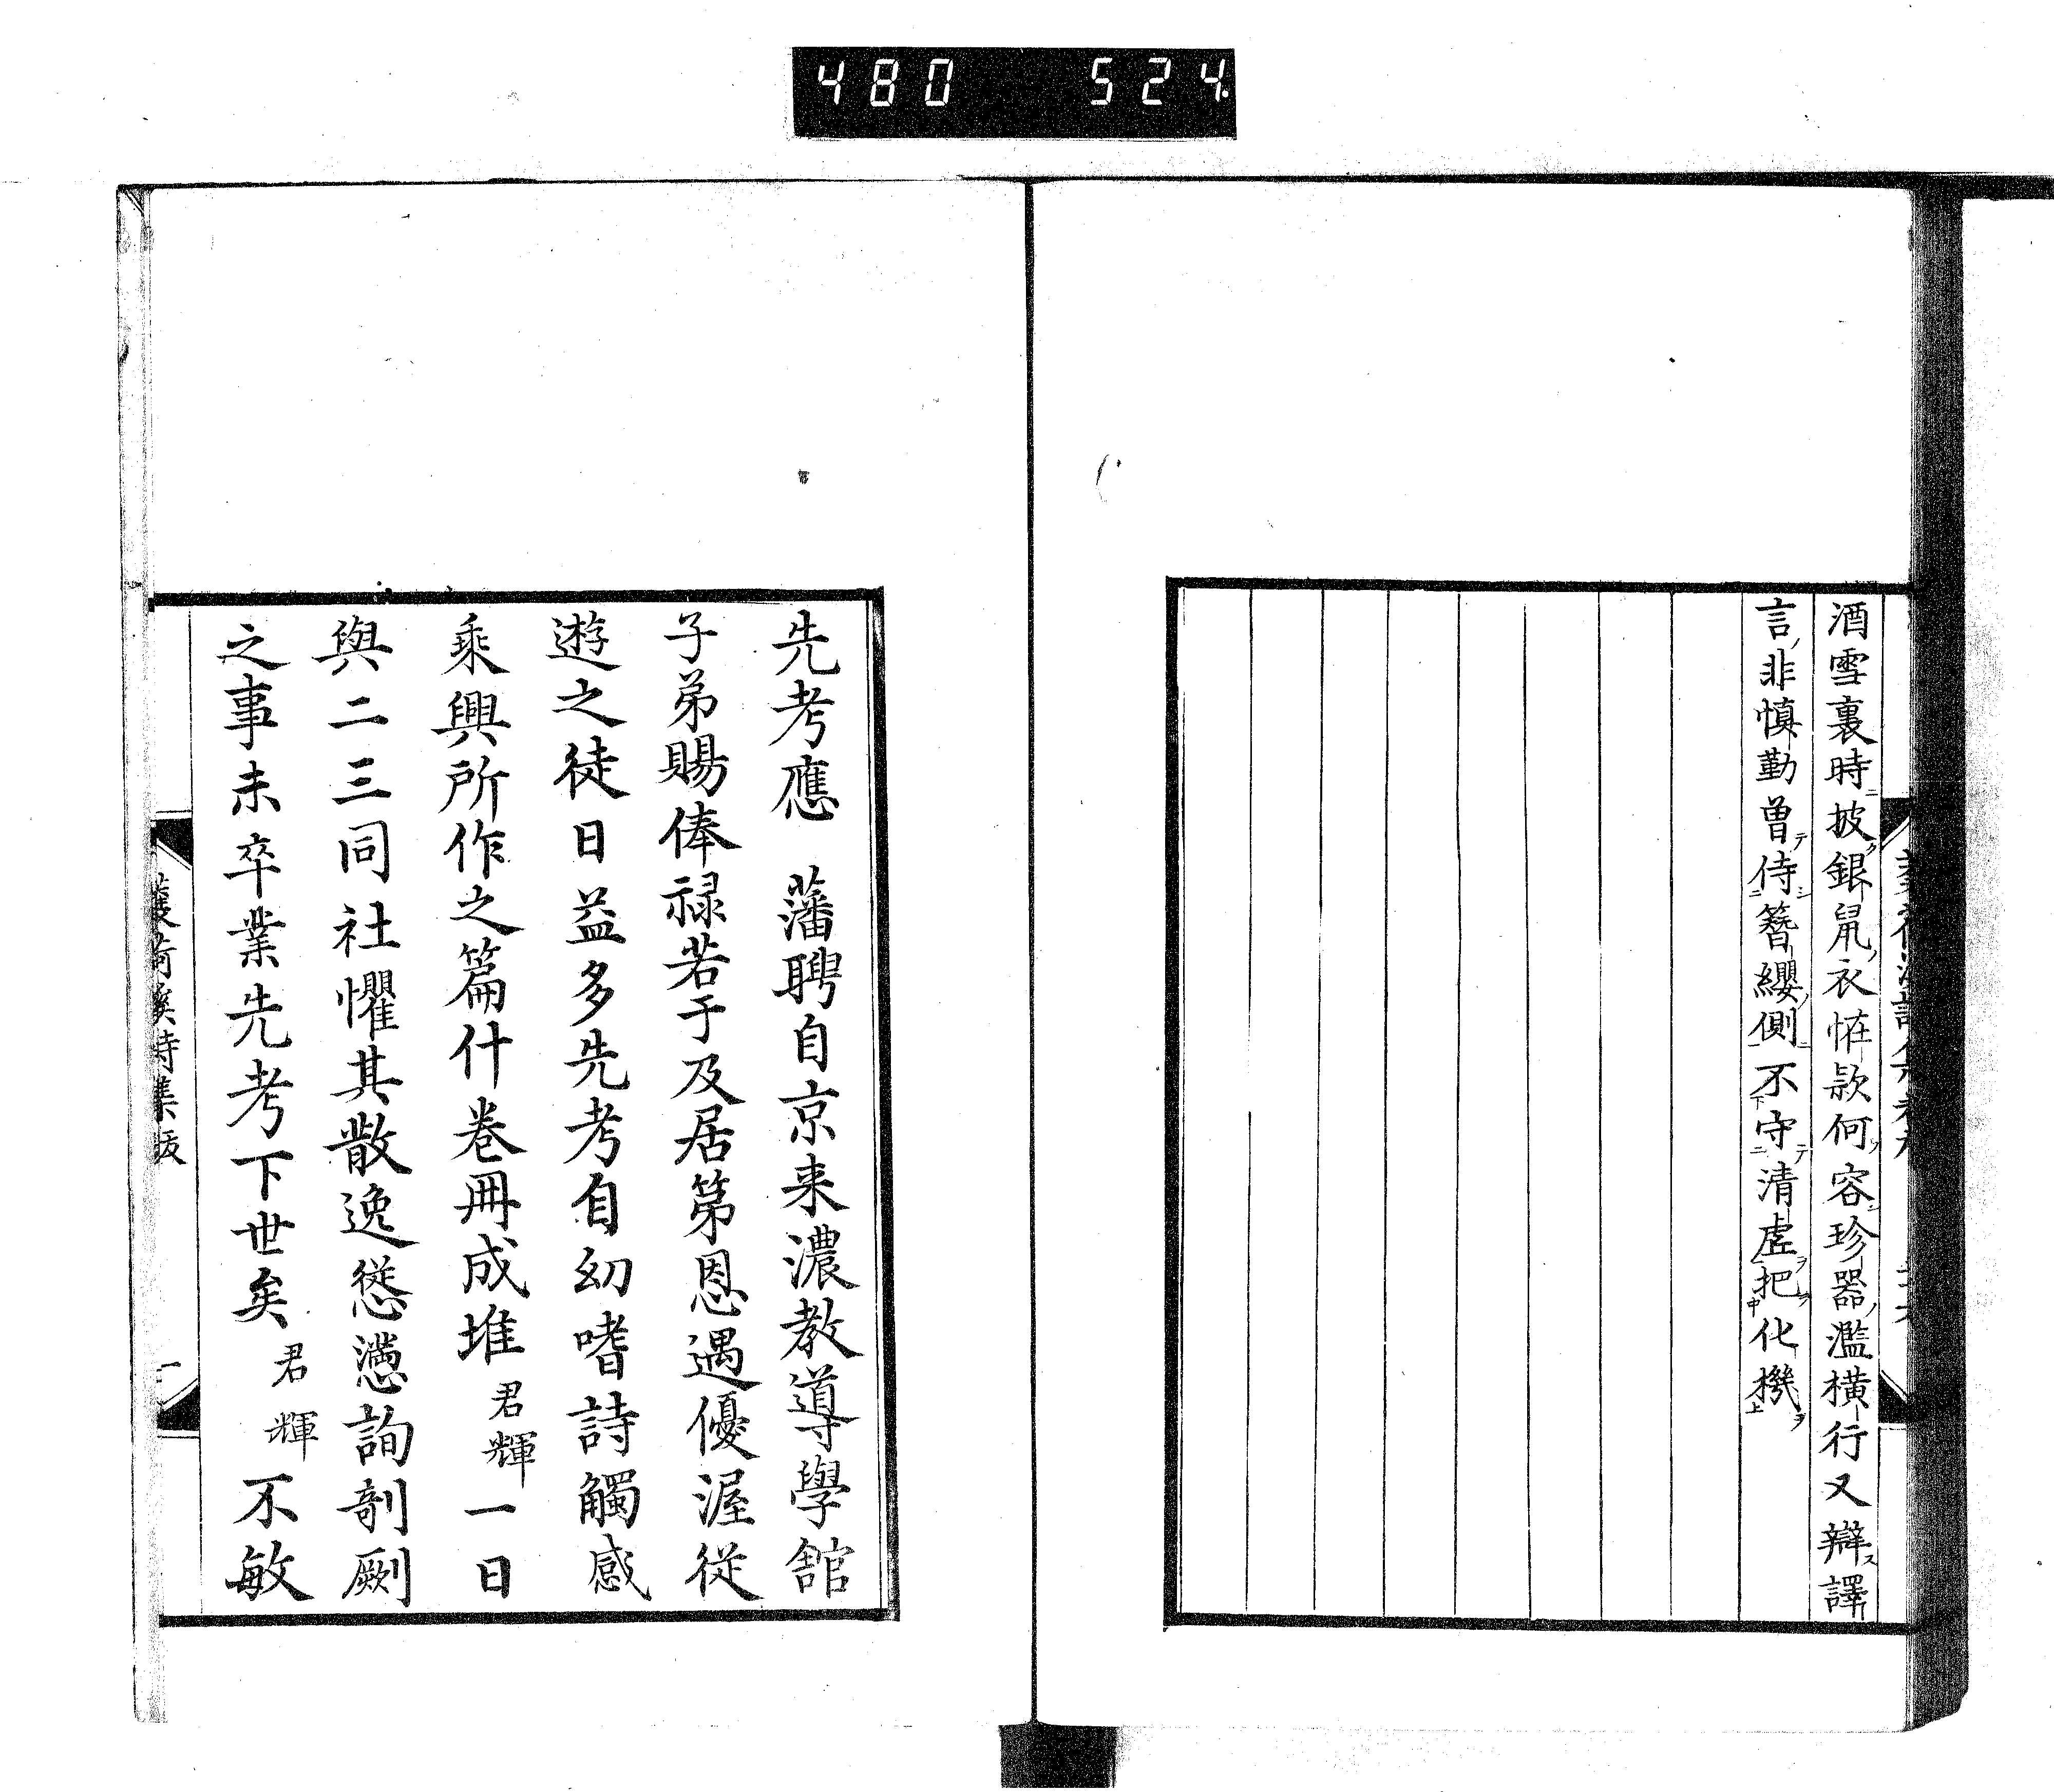 480 524.
酒雪裏時披銀鼠衣恠款何容珍器濫橫行又辯譯
言非慎勤曽侍簪纓側不守清虛把化機
先考應 藩聘自京来濃教導學館
子弟賜俸祿若于及居第恩遇優渥従
遊之徒日益多先考自幻嗜詩觸感
乘興所作之篇什卷冊成堆君輝一日
與二三同社懼其散逸慫懣詢剞劂
之事未卒業先考下世矣君輝不敏